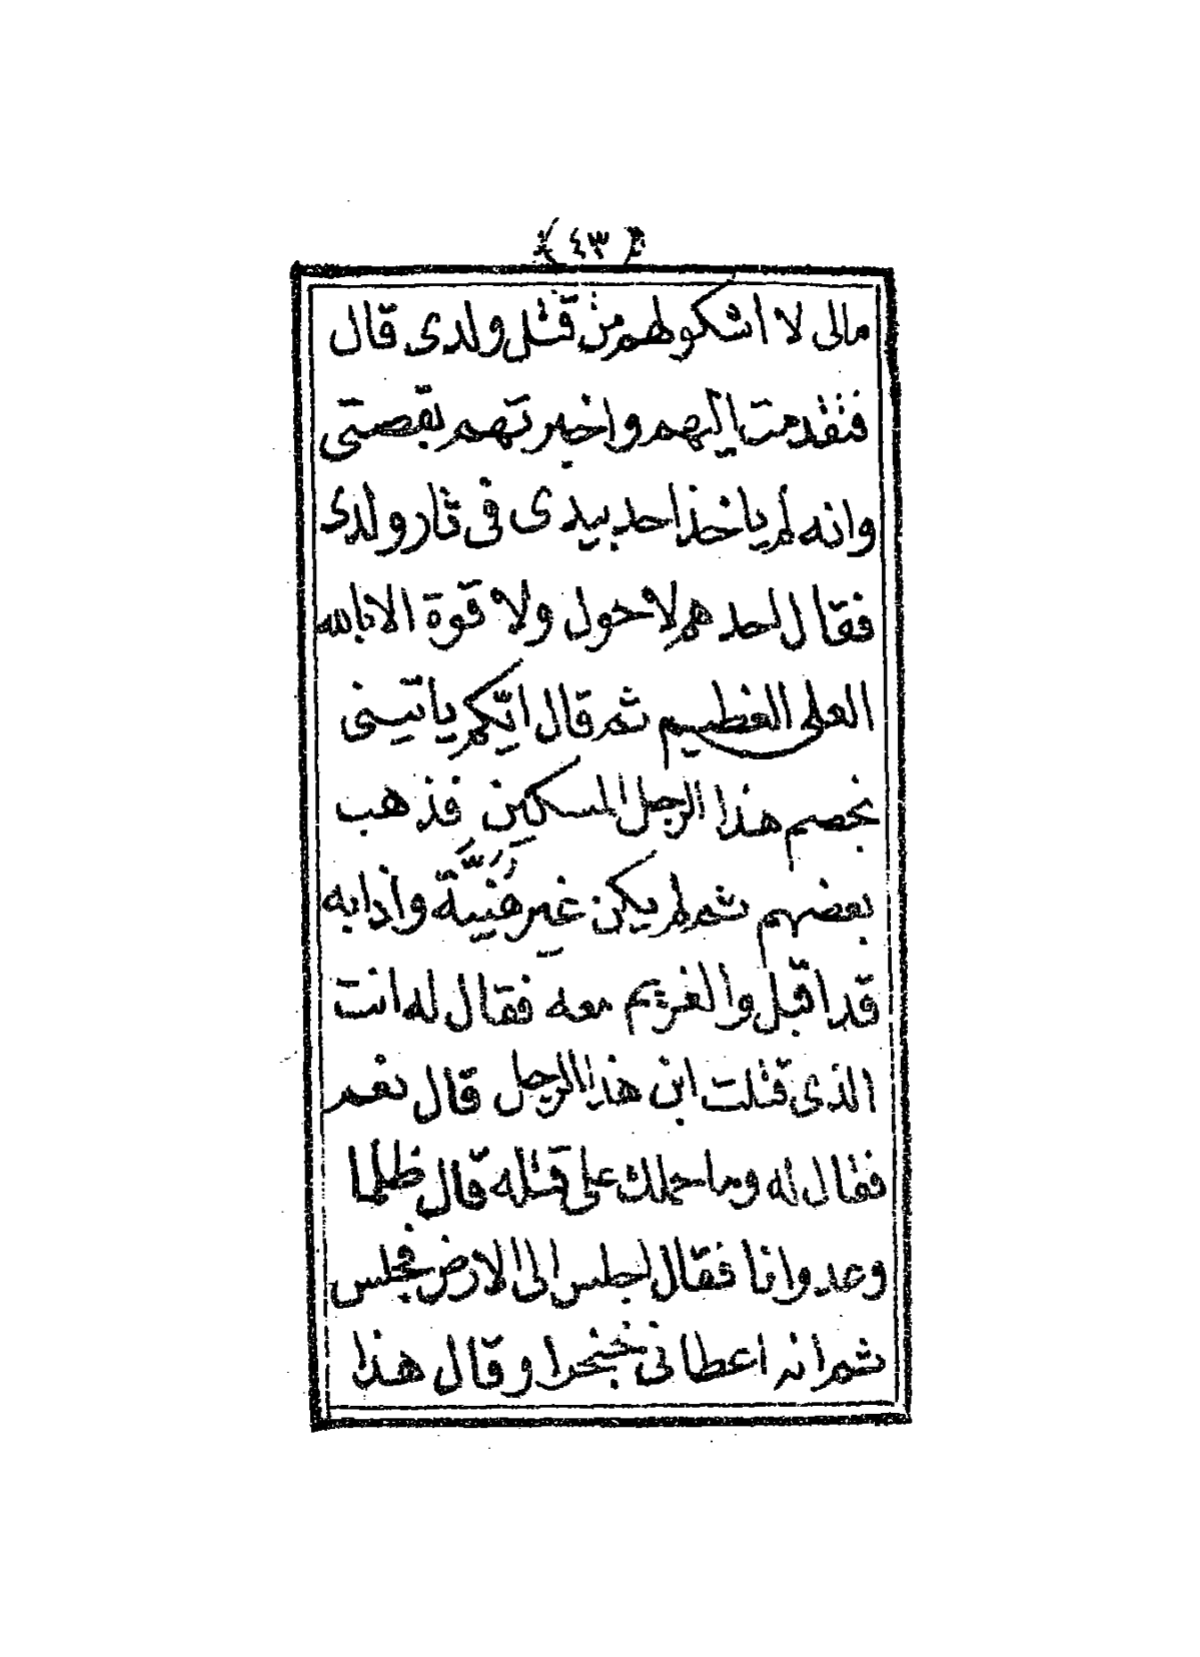 (٤٣)
مالى لا اشكو لهم من قتل ولدى قال
فتقدمت اليهم واخبرتهم بقصتى
وانه لم ياخذ احد بيدى فى ثار ولدى
فقال احدهم لا حول ولا قوة الا بالله
العلى العظيم ثم قال ايّكم ياتينى
بخصم هذا الرجل المسكين فذهب
بعضهم ثم لم يكن غير هُنَيَّة واذا به
قد اقبل والغريم معه فقال له انت
الذى قتلت ابن هذا الرجل قال نعم
فقال له وما حملك على قتله قال ظلما
وعدوانا فقال اجلس الى الارض فجلس
ثم انه اعطانى خنجرا وقال هذا